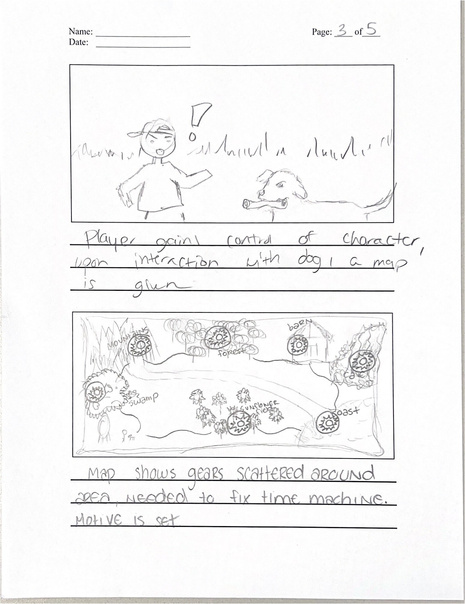 Name:
Page: 3 of 5
Date:
!
Player gains control of character,
upon interaction with dog, a map
is given
MOUNTAINS
FOREST
BARN
SWAMP
SUNFLOWER
COAST
MAP SHOWS GEARS SCATTERED AROUND
AREA, NEEDED TO FIX TIME MACHINE.
MOTIVE IS SET